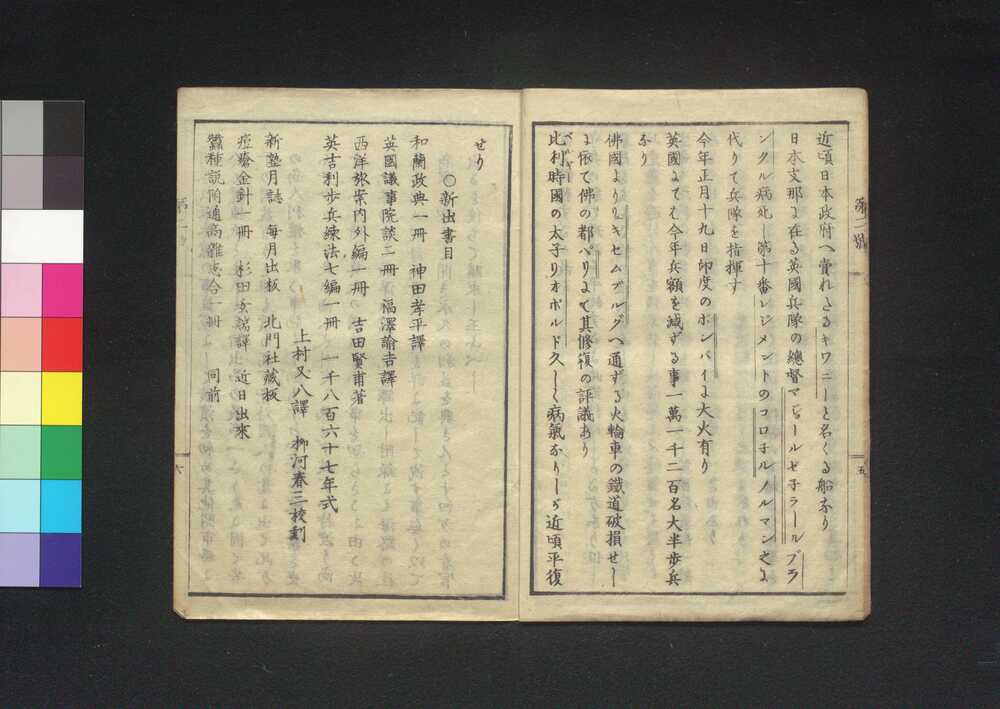 第二號
近頃日本政府へ賣れたるキワニーと名くる船なり
日本支那に在る英國兵隊の總督マジョールゼ子ラールブラ
ンクル病死し第十番レジメントのコロ子ルノルマン之に
代りて兵隊を指揮す
今年正月十九日印度のボンバイに大火有り
英國にても今年兵額を減ずる事一萬一千二百名大半歩兵
なり
佛國よりリキセムブルグへ通ずる火輪車の鐵道破損せし
に依て佛の都パリにて其修復の評議あり
比利時國の太子リオポルド久しく病氣なりしが近頃平復
五
せり
○新出書目
和蘭政典一冊 神田孝平譯
英國議事院談二冊 福澤諭吉譯
西洋旅案内外編一冊 吉田賢甫著
英吉利歩兵練法七編一冊 一千八百六十七年式
上村又八譯 柳河春三校刻
新塾月誌 毎月出板 北門社藏板
痘瘡金針一冊 杉田玄端譯 近日出來
蠶種説 同前
六